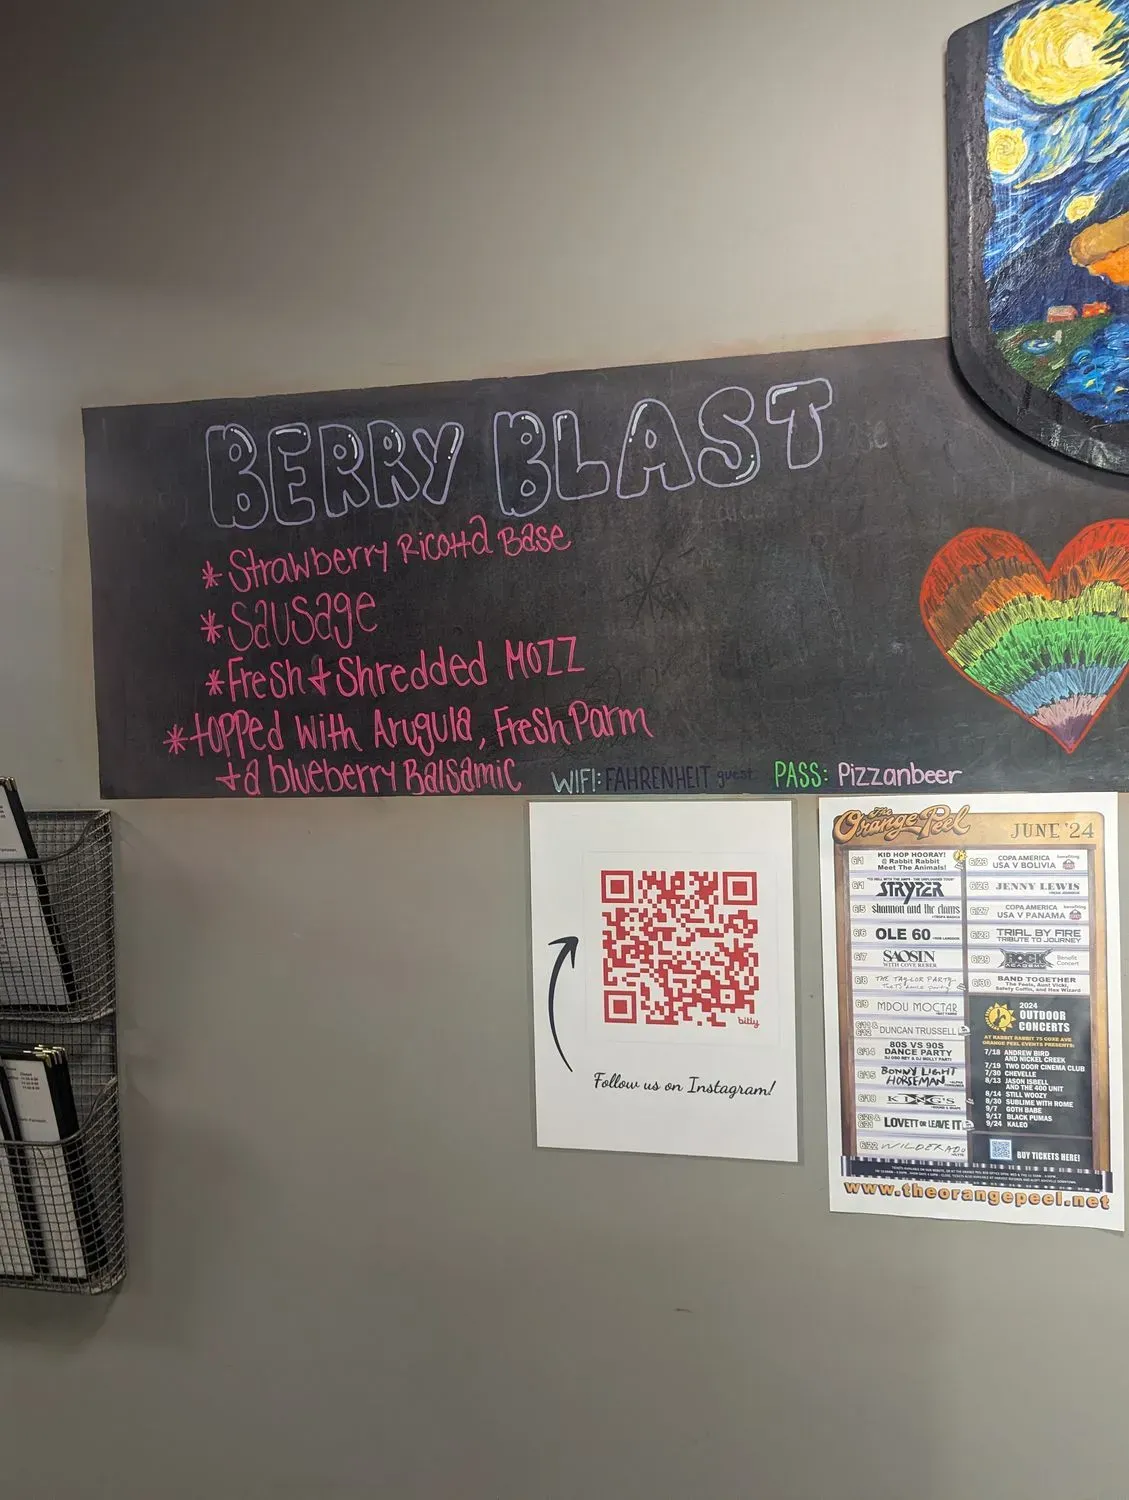 BERRY BLAST
* Strawberry Ricotta Base
* Sausage
* Fresh + Shredded Mozz
* topped with Arugula, Fresh Parm
+ a blueberry Balsamic
WIFI: FAHRENHEIT guest PASS: Pizzanbeer
bitly
Follow us on Instagram!
The Orange Peel
JUNE '24
6/1 KID HOP HOORAY!
@ Rabbit Rabbit
Meet The Animals!
6/1 STRYPER
6/5 shannon and the clams
6/6 OLE 60
6/7 SAOSIN
WITH COVE REBER
6/8 THE TAYLOR PARTY
6/9 MDOU MOCTAR
6/11 & 6/12 DUNCAN TRUSSELL
6/14 80S VS 90S
DANCE PARTY
6/15 BONNY LIGHT
HORSEMAN
6/18 KING'S
6/20 & 6/21 LOVETT OR LEAVE IT
6/22 WILDERADO
6/23 COPA AMERICA
USA V BOLIVIA
6/26 JENNY LEWIS
6/27 COPA AMERICA
USA V PANAMA
6/28 TRIAL BY FIRE
TRIBUTE TO JOURNEY
6/29 ROCK ACADEMY Benefit Concert
6/30 BAND TOGETHER
The Feels, Aunt Vicki,
Safety Coffin, and Hex Wizard
2024
OUTDOOR
CONCERTS
AT RABBIT RABBIT 75 COXE AVE
ORANGE PEEL EVENTS PRESENTS:
7/18 ANDREW BIRD
AND NICKEL CREEK
7/19 TWO DOOR CINEMA CLUB
7/30 CHEVELLE
8/13 JASON ISBELL
AND THE 400 UNIT
8/14 STILL WOOZY
8/30 SUBLIME WITH ROME
9/7 GOTH BABE
9/17 BLACK PUMAS
9/24 KALEO
BUY TICKETS HERE!
www.theorangepeel.net